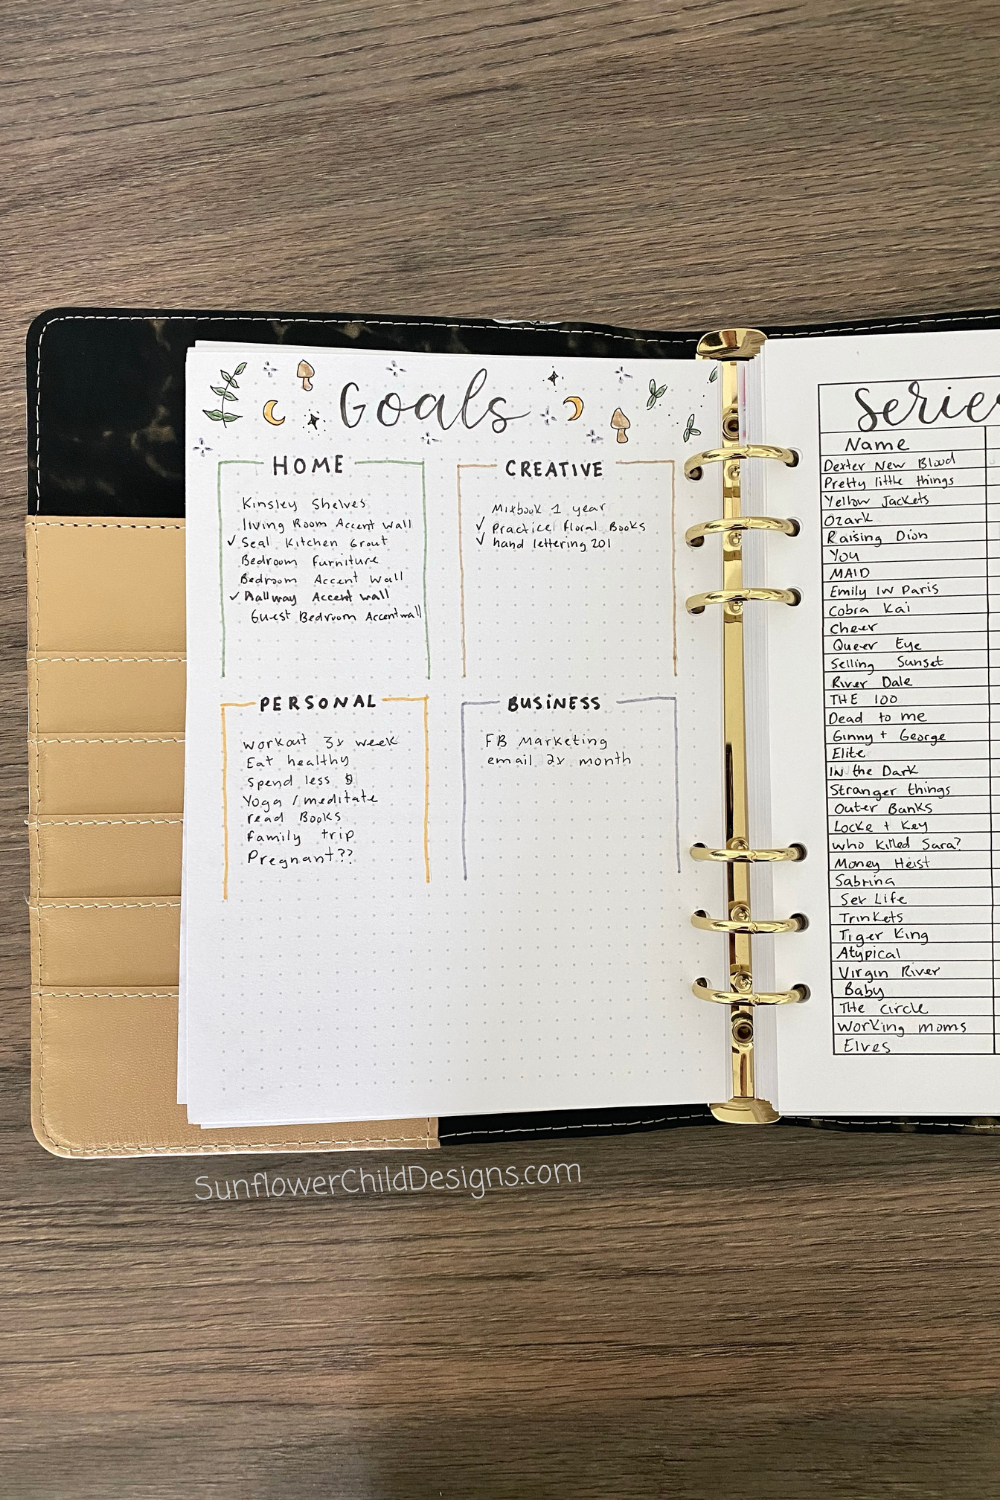 Goals
HOME
Kinsley Shelves
living Room Accent wall
✓ Seal Kitchen Grout
Bedroom Furniture
Bedroom Accent Wall
✓ Hallway Accent wall
Guest Bedroom Accent wall
CREATIVE
Mixbook 1 year
✓ Practice floral Books
✓ hand lettering 201
PERSONAL
workout 3x week
Eat healthy
Spend less $
Yoga / meditate
read Books
family trip
Pregnant??
BUSINESS
FB Marketing
email 2x month
Series
Name
Dexter New Blood
Pretty little things
Yellow Jackets
Ozark
Raising Dion
You
MAID
Emily IN Paris
Cobra Kai
Cheer
Queer Eye
Selling Sunset
River Dale
THE 100
Dead to me
Ginny + George
Elite
IN the Dark
Stranger things
Outer Banks
Locke + Key
who Killed Sara?
Money Heist
Sabrina
Sex Life
Trinkets
Tiger King
Atypical
Virgin River
Baby
THE circle
working moms
Elves
SunflowerChildDesigns.com